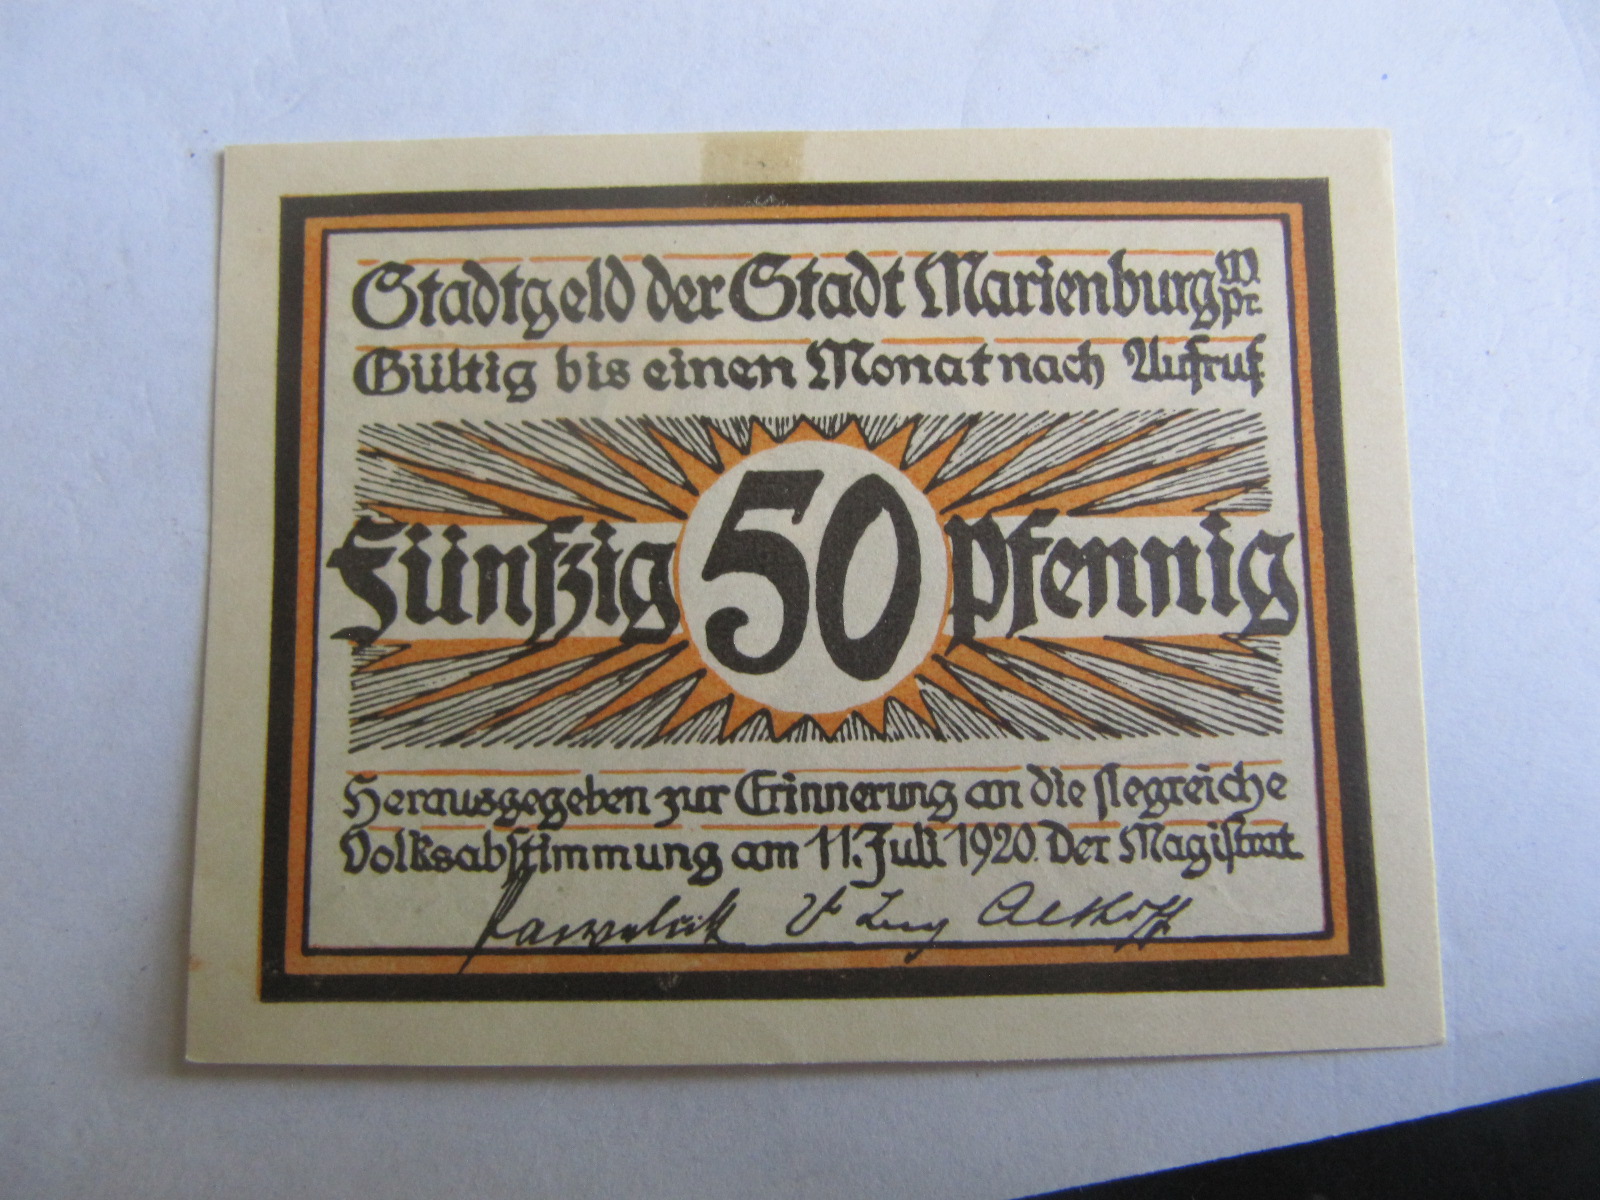 Stadtgeld der Stadt Marienburg W. Pr.
Gültig bis einen Monat nach Aufruf
Fünfzig 50 Pfennig
Herausgegeben zur Erinnerung an die siegreiche
Volksabstimmung am 11. Juli 1920. Der Magistrat
Pawelcik